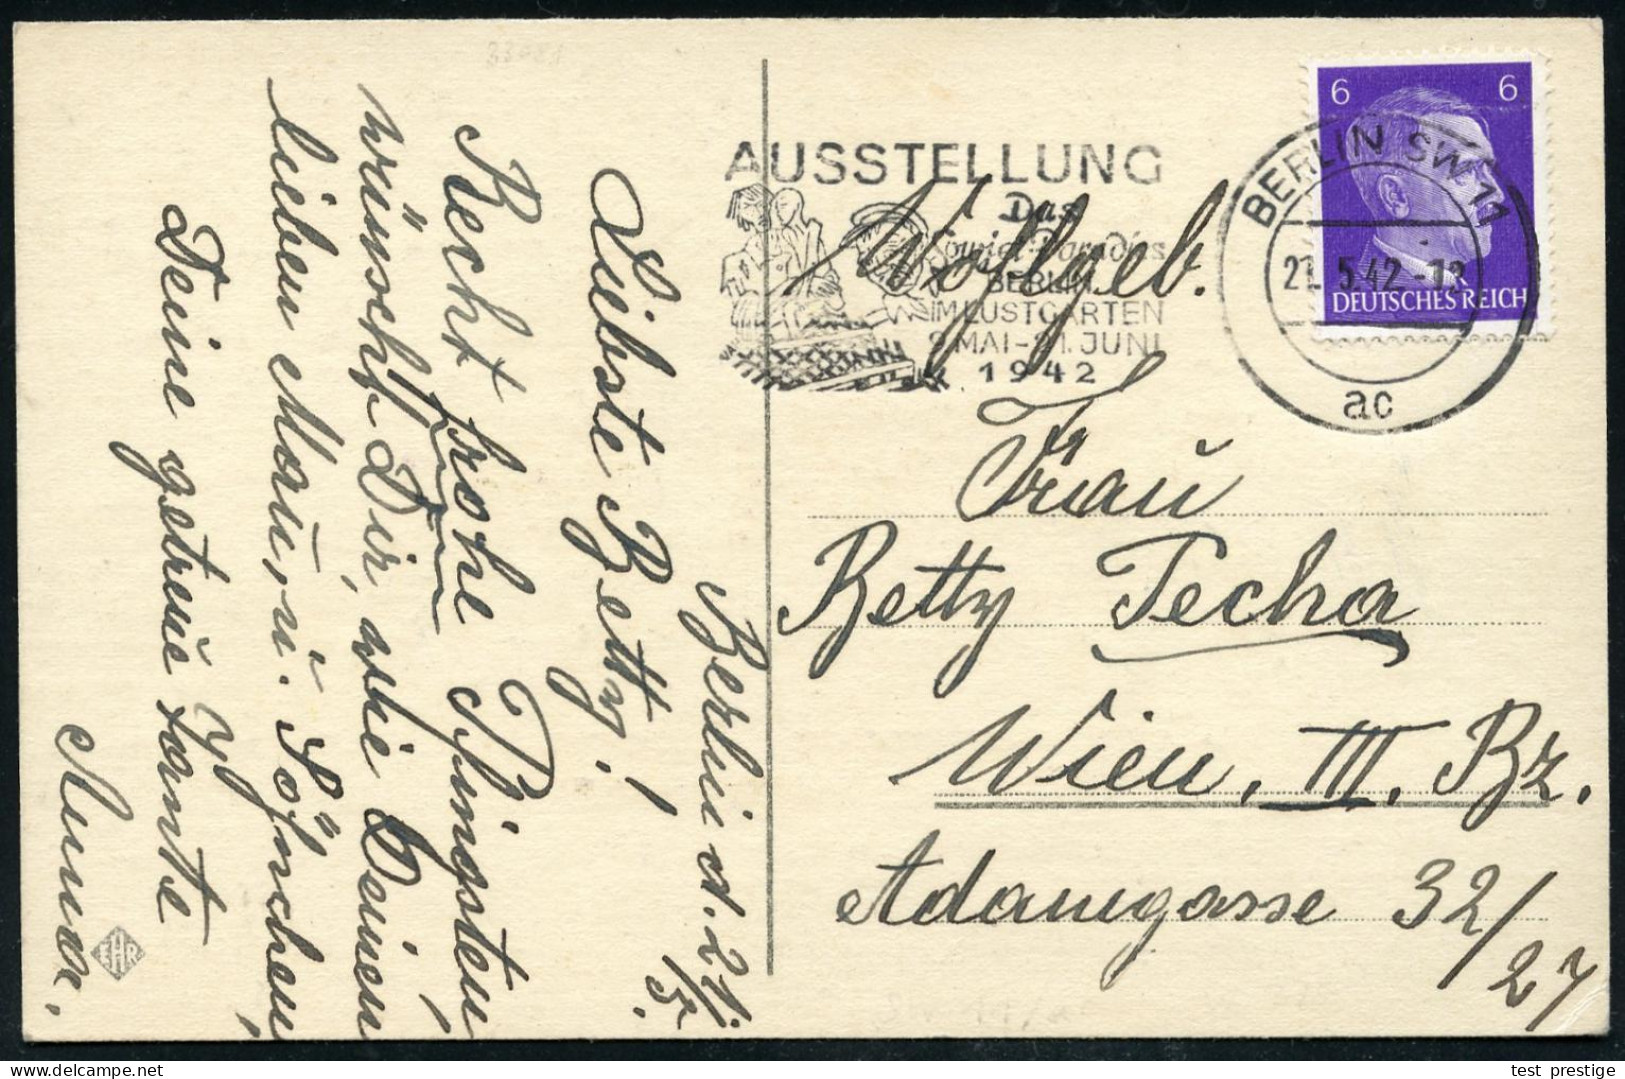 Berlin d. 21./5.
Liebste Betty!
Recht frohe Pfingsten,
wünscht Dir, wie Deinen
lieben Mann u. Söhnchen,
Deine getreue Tante
AUSSTELLUNG
Das
Sowjet-Paradies
BERLIN
IM LUSTGARTEN
9. MAI-21. JUNI
1942
6 6
DEUTSCHES REICH
BERLIN SW 11
21.5.42.-18
ac
Wohlgeb.
Frau
Betty Techa
Wien, III. Bz.
Adamgasse 32/
27
EHR
test prestige